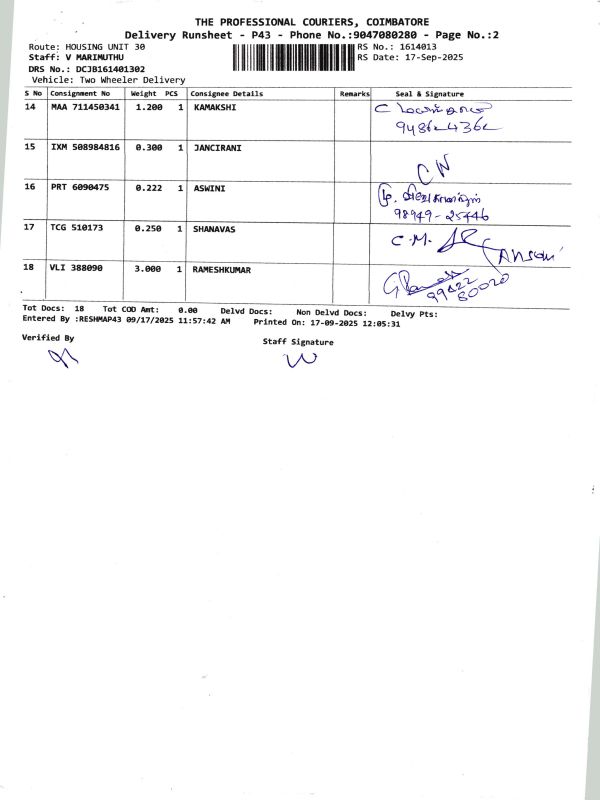 THE PROFESSIONAL COURIERS, COIMBATORE
Delivery Runsheet - P43 - Phone No.:9047080280 - Page No.:2
Route: HOUSING UNIT 30 RS No.: 1614013
Staff: V MARIMUTHU RS Date: 17-Sep-2025
DRS No.: DCJB161401302
Vehicle: Two Wheeler Delivery
S No Consignment No Weight PCS Consignee Details Remarks Seal & Signature
14 MAA 711450341 1.200 1 KAMAKSHI
15 IXM 508984816 0.300 1 JANCIRANI
16 PRT 6090475 0.222 1 ASWINI
98949-25446
17 TCG 510173 0.250 1 SHANAVAS C.M.
18 VLI 388090 3.000 1 RAMESHKUMAR
99422
80020
Tot Docs: 18 Tot COD Amt: 0.00 Delvd Docs: Non Delvd Docs: Delvy Pts:
Entered By :RESHMAP43 09/17/2025 11:57:42 AM Printed On: 17-09-2025 12:05:31
Verified By Staff Signature